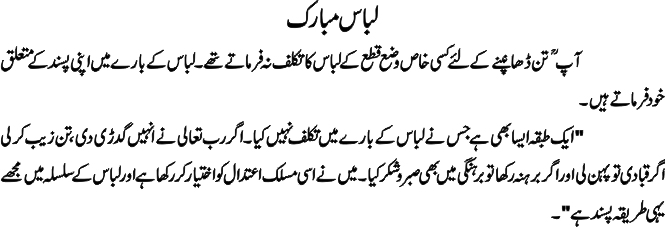 لباس مبارک
آپؒ تن ڈھانپنے کے لئے کسی خاص وضع قطع کے لباس کا تکلف نہ فرماتے تھے۔ لباس کے بارے میں اپنی پسند کے متعلق
خود فرماتے ہیں ۔
"ایک طبقہ ایسا بھی ہے جس نے لباس کے بارے میں تکلف نہیں کیا۔ اگر رب تعالی نے انہیں گدڑی دی، تن زیب کر لی
اگر قبا دی تو پہن لی اور اگر برہنہ رکھا تو برہنگی میں بھی صبر و شکر کیا۔ میں نے اسی مسلک اعتدال کو اختیار کر رکھا ہے اور لباس کے سلسلہ میں مجھے
یہی طریقہ پسند ہے"۔